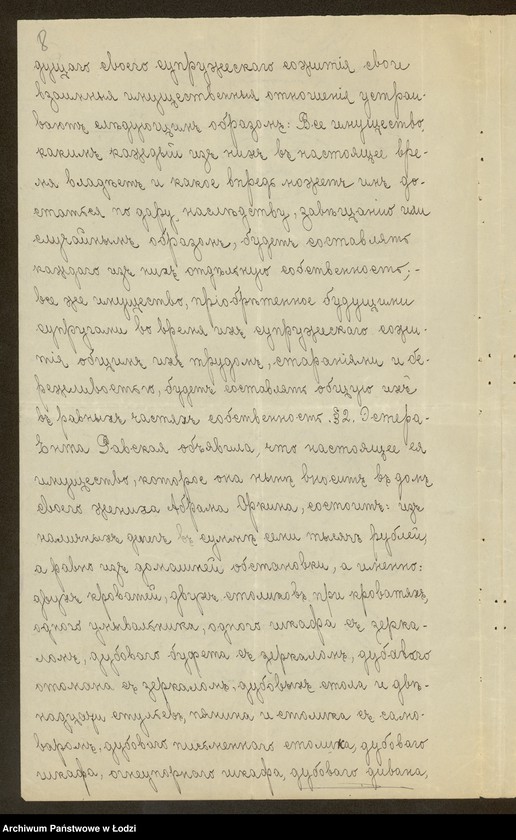 8
дущаго своего супружескаго сожитія свои
взаимныя имущественныя отношенія устраи-
ваютъ слѣдующимъ образомъ: Все имущество,
какимъ каждый изъ нихъ въ настоящее вре-
мя владѣетъ и какое впредь можетъ имъ до-
статься по дару, наслѣдству, завѣщанію или
случайнымъ образомъ, будетъ составлять
каждаго изъ нихъ отдѣльную собственность; -
все же имущество, пріобрѣтенное будущими
супругами во время ихъ супружескаго сожи-
тія общимъ ихъ трудомъ, стараніями и бе-
режливостью, будетъ составлять общую ихъ
въ равныхъ частяхъ собственность. §2. Эстера-
Ента Равская объявила, что настоящее ея
имущество, которое она нынѣ вноситъ въ домъ
своего жениха Абрама Оркина, состоитъ: изъ
наличныхъ денегъ въ суммѣ семи тысячъ рублей,
а равно изъ домашней обстановки, а именно:
двухъ кроватей, двухъ столиковъ при кроватяхъ,
одного умывальника, одного шкафа съ зерка-
ломъ, дубоваго буфета съ зеркаломъ, дубоваго
отомана съ зеркаломъ, дубовыхъ стола и двѣ-
надцати стульевъ, пянина и столика съ само-
варомъ, дубоваго письменнаго столика, дубоваго
шкафа, огнеупорнаго шкафа, дубоваго дивана,
Archiwum Państwowe w Łodzi